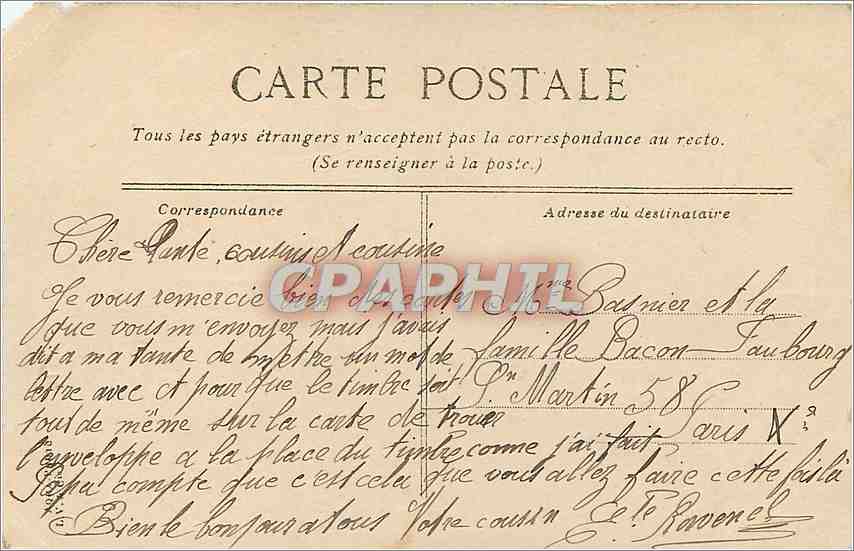 CARTE POSTALE
Tous les pays étrangers n'acceptent pas la correspondance au recto.
(Se renseigner à la poste.)
Correspondance
Chère Tante, cousins et cousine
Je vous remercie bien des cartes
que vous m'envoyez mais j'avais
dit a ma tante de mettre un mot de
lettre avec et pour que le timbre soit
tout de même sur la carte de trouer
l'enveloppe a la place du timbre comme j'ai fait
Papa compte que c'est cela que vous allez faire cette fois là
Bien le bonjour a tous Votre cousin Ravenel
Adresse du destinataire
Mme Basnier et la
famille Bacon Faubourg
St Martin 58
Paris Xe
CPAPHIL